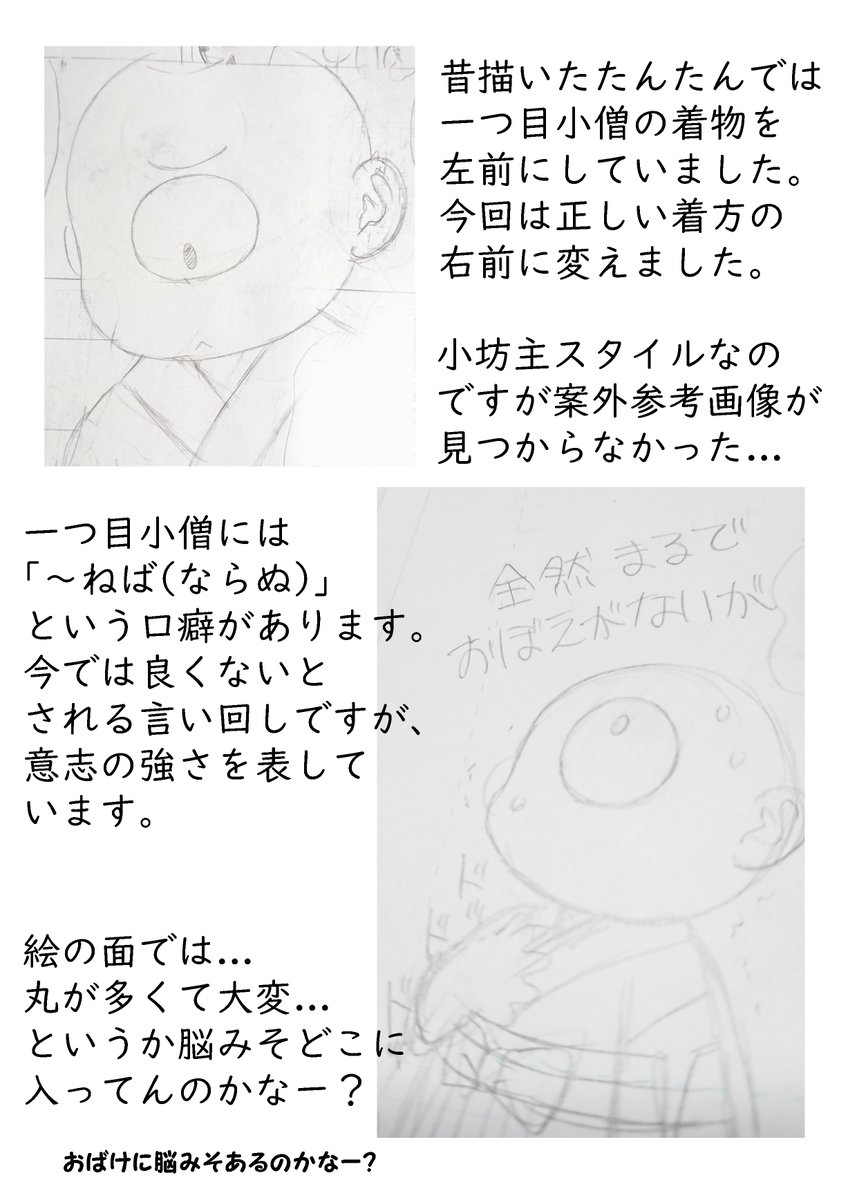 昔描いたたんたんでは
一つ目小僧の着物を
左前にしていました。
今回は正しい着方の
右前に変えました。
小坊主スタイルなの
ですが案外参考画像が
見つからなかった…
一つ目小僧には
「～ねば(ならぬ)」
という口癖があります。
今では良くないと
される言い回しですが、
意志の強さを表して
います。
全然まるで
おぼえがないが
ドドドド
絵の面では…
丸が多くて大変…
というか脳みそどこに
入ってんのかなー？
おばけに脳みそあるのかなー?